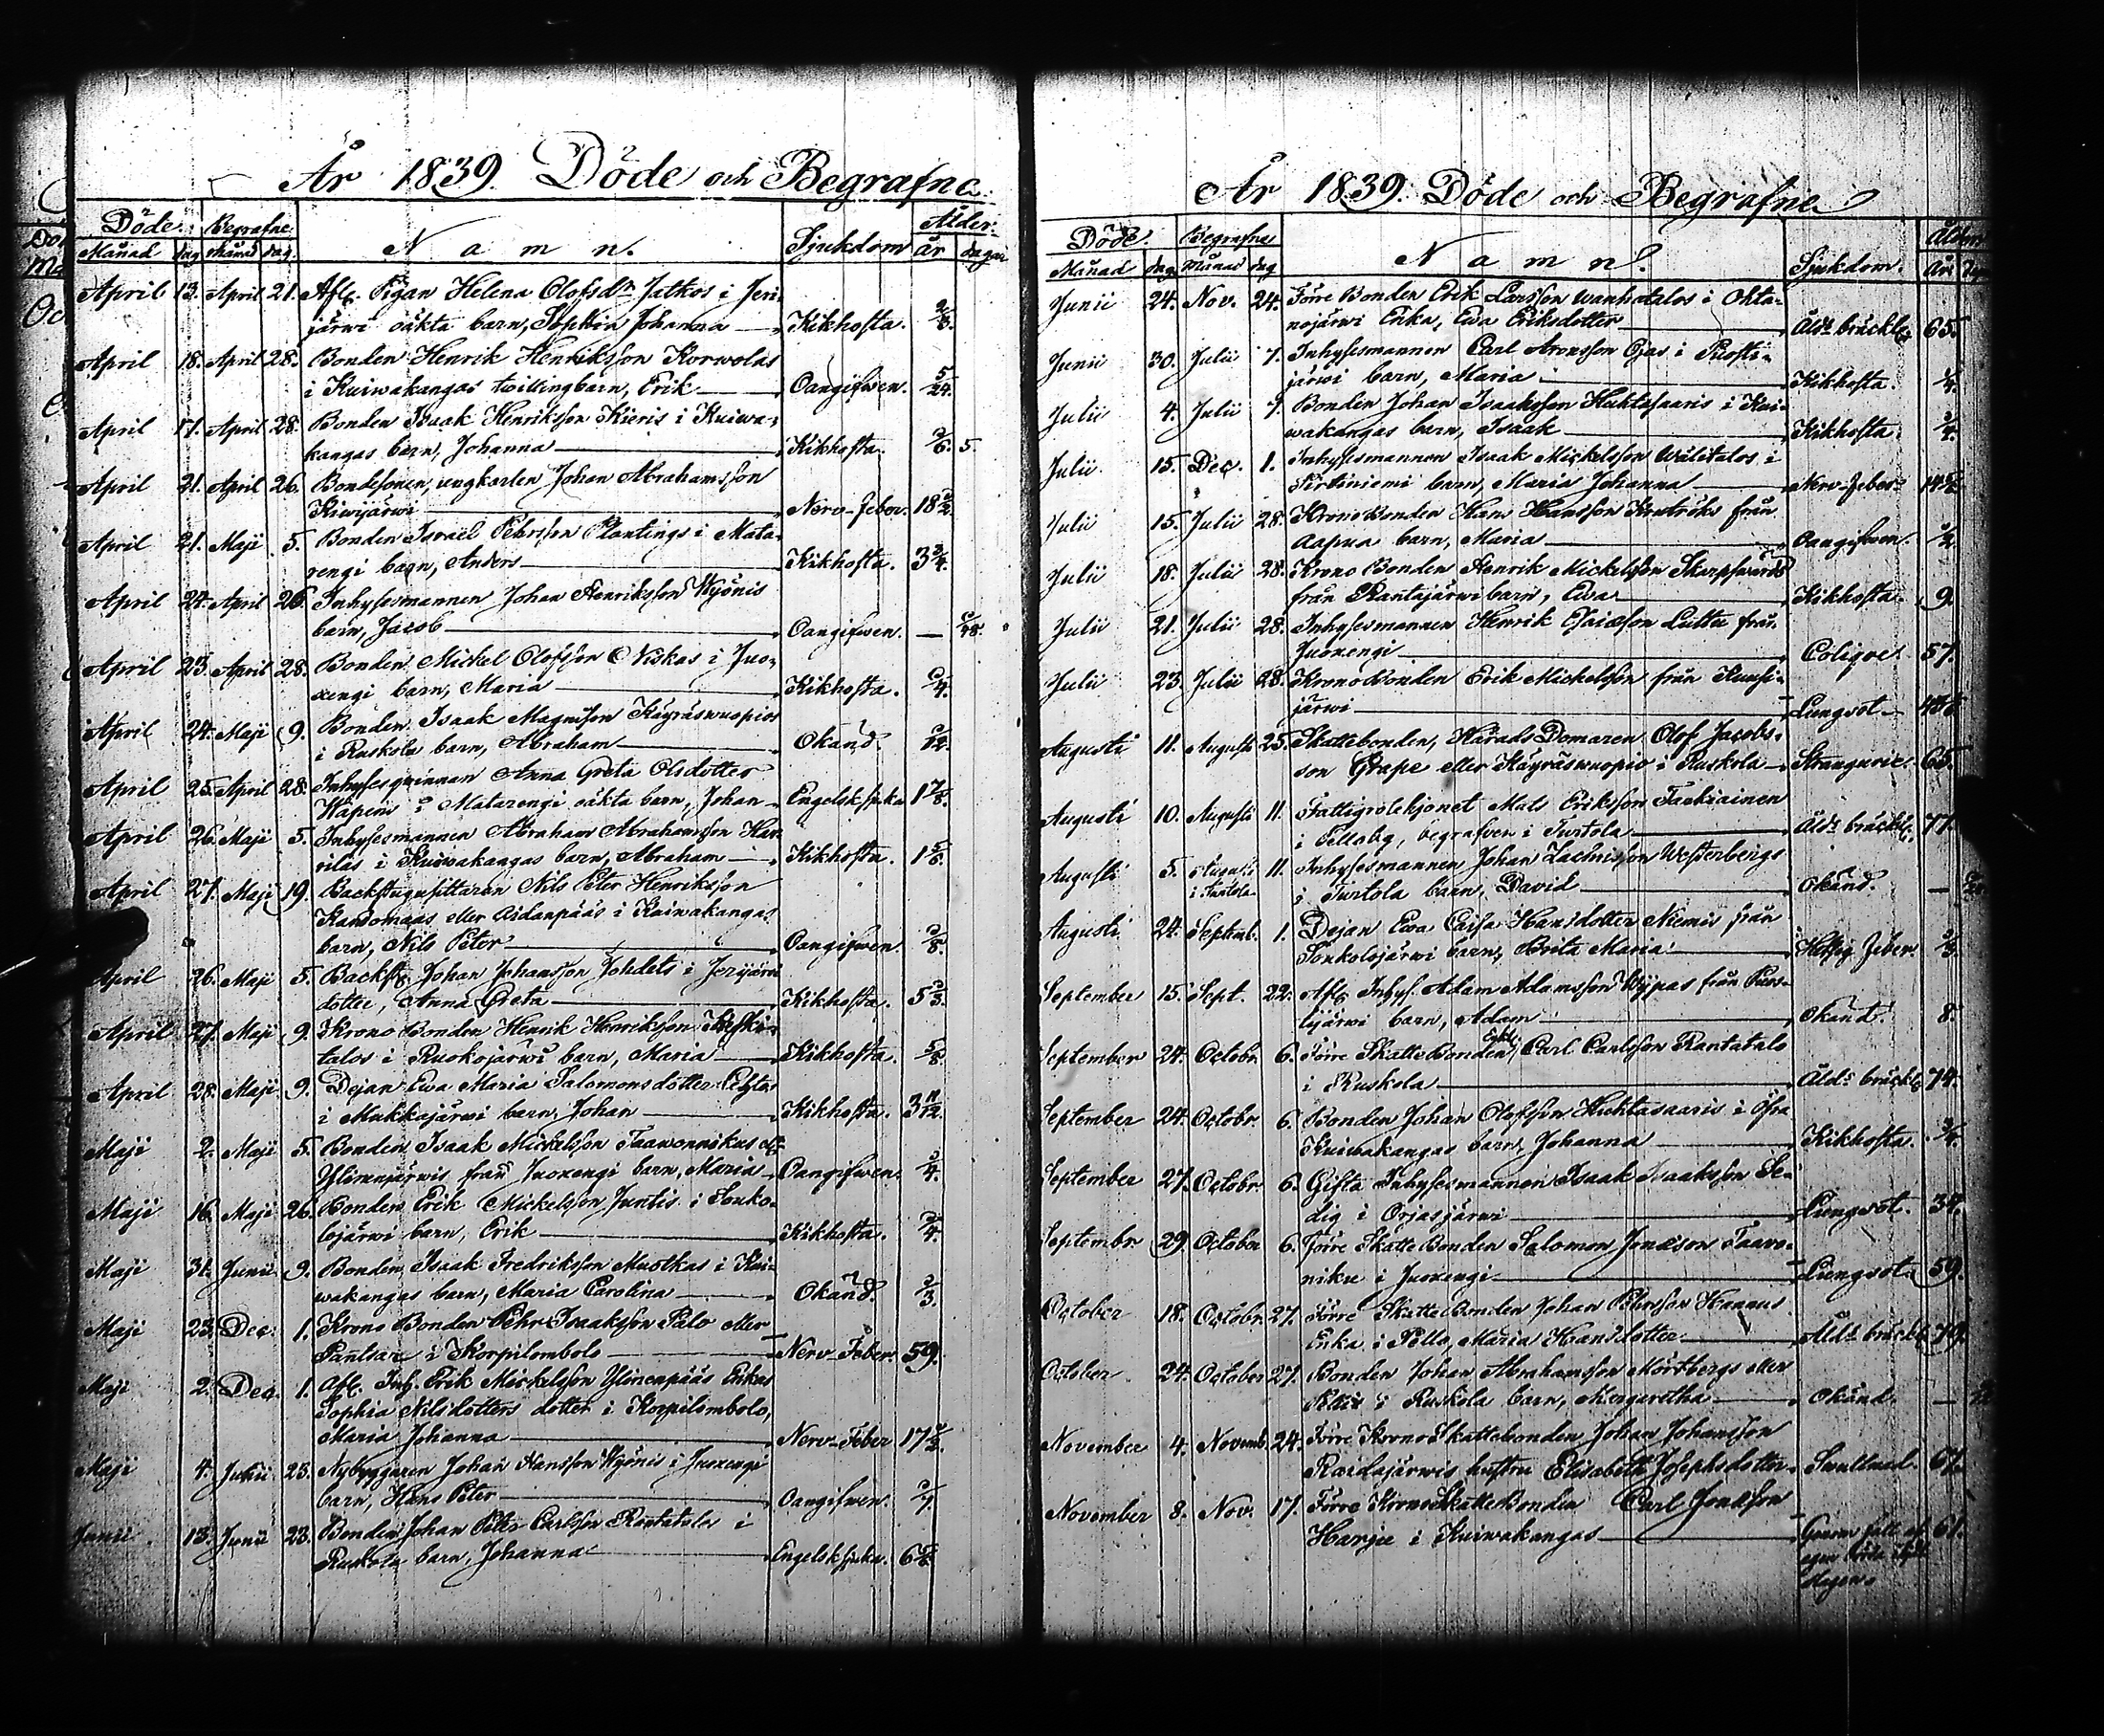 År 1839. Döde och Begrafne.
Döde. Begrafne. Namn. Sjukdom Ålder.
Månad dag Månad dag. år dagar
April 13. April 21. Afl. Pigan Helena Olofsdr Jatkos i Jeri-
järwi oäkta barn, Sophia Johanna Kikhosta. 2/3.
April 18. April 28. Bonden Henrik Henriksson Korwolas
i Kuiwakangas twillingbarn, Erik Oangifwen. 5/24.
April 17. April 28. Bonden Isaak Henriksson Kieris i Kuiwa-
kangas barn, Johanna Kikhosta. 5.
April 21. April 26. Bondesonen, ungkarlen Johan Abrahamsson
Kiwijärwi Nerv-Feber. 18 1/2.
April 21. Maji 5. Bonden Israel Pehrsson Plantings i Mata-
rengi barn, Anders Kikhosta. 3 3/4.
April 24. April 26. Inhysesmannen Johan Henriksson Wyönis
barn, Jacob Oangifwen. —
April 23. April 28. Bonden Mickel Olofsson Niskas i Juo-
xengi barn, Maria Kikhosta.
April 24. Maji 9. Bonden Isaak Magnusson Käyräswuopios
i Ruskola barn, Abraham Okänd.
April 25. April 28. Inhysesqvinnan Anna Greta Olsdotter
Wäpeni i Matarengi oäkta barn, Johan Engelsksjuka 1 7/8.
April 26. Maji 5. Inhysesmannen Abraham Abrahamsson Har-
rilas i Kuiwakangas barn, Abraham Kikhosta.
April 27. Maji 19. Backstugusittaren Nils Peter Henriksson
Kandomaas eller Aidanpääs i Kuiwakangas
barn, Nils Peter Oangifwen.
April 26. Maji 5. Backst. Johan Johansson Johdets i Jerijärwi
dotter, Anna Greta Kikhosta.
April 27. Maji 9. Krono Bonden Henrik Henriksson
talos i Ruokojärwi barn, Maria Kikhosta. 5/8.
April 28. Maji 9. Dejan Ewa Maria Salomonsdotter
i Mukkajärwi barn, Johan Kikhosta. 3 11/12.
Maji 2. Maji 5. Bonden Isaak Mickelsson Taawonnikus ell.
Ylinenjärwis från Juoxengi barn, Maria Oangifwen.
Maji 16. Maji 26. Bonden Erik Mickelsson Juntis i Sonko-
lojärwi barn, Erik Kikhosta.
Maji 31. Junii 9. Bonden Isaak Fredriksson Mustkas i Kui-
wakangas barn, Maria Carolina Okänd. 2/3.
Maji 23. Dec. 1. Krono Bonden Pehr Isaaksson Palo eller
Pantsar i Korpilombolo Nerv Feber. 59.
Maji 2. Dec. 1. Afl. Inh. Erik Mickelsson Ylinenpääs Enkas
Sophia Nilsdotters dotter i Korpilombolo,
Maria Johanna Nerv-Feber 17 1/2.
Maji 4. Junii 23. Nybyggaren Johan Hansson Wyönis i Juoxengi
barn, Hans Peter Oangifwen.
Junii 13. Junii 23. Bonden Johan Peter Carlsson Rantatalos i
Ruskola barn, Johanna Engelsksjuka.
År 1839. Döde och Begrafne
Döde. Begrafne Namn. Sjukdom. Ålder
Månad dag Månad dag År
Junii 24. Nov. 24. Förre Bonden Erik Larsson Wanhatalos i Ohta-
nojärwi Enka, Ewa Eriksdotter Ålds bräckl. 65.
Junii 30. Julii 7. Inhysesmannen Carl Aronsson Ojas i Puosti-
järwi barn, Maria Kikhosta.
Julii 4. Julii 7. Bonden Johan Isaaksson Huhtasaaris i Kui-
wakangas barn, Isaak Kikhosta.
Julii 15. Dec. 1. Inhysesmannen Isaak Mickelsson Wälitalos i
Pirtiniemi barn, Maria Johanna Nerv-Feber.
Julii 15. Julii 28. Krono Bonden Hans Hansson Krutröks från
Aapua barn, Maria Oangifwen.
Julii 18. Julii 28. Krono Bonden Henrik Mickelsson Skarpswärds
från Rantajärwi barn, Ewa Kikhosta. 9.
Julii 21. Julii 28. Inhysesmannen Henrik Esaiasson Luttu från
Juoxengi Colique. 57.
Julii 23. Julii 28. Krono Bonden Erik Mickelsson från Kuusi-
järwi Lungsot
Augusti 11. Augusti 25. Skattebonden, Härads Domaren Olof Jacobs-
son Grape eller Käyräswuopio i Ruskola Strangurie. 65.
Augusti 10. Augusti 11. Fattigrolehjonet Mats Eriksson Taekiainen
i Pelloby, begrafwen i Turtola Ålds bräckl. 77.
Augusti 5. Augusti 11. Inhysesmannen Johan Zachrisson Westerbergs
i Turtola
i Turtola barn, David Okänd. —
Augusti 24. Septemb. 1. Dejan Ewa Caisa Hansdotter Niemis från
Sonkolojärwi barn, Brita Maria Hetsig Feber.
September 15. Sept. 22. Afl. Inhys. Adam Adamsson Wyypas från Puos-
tijärwi barn, Adam Okänd. 8.
September 24. Octobr. 6. Förre Skatte Bonden Carl Carlsson Rantatalo
i Ruskola Ålds bräckl. 74.
September 24. Octobr. 6. Bonden Johan Olofsson Huhtasaaris i öfra
Kuiwakangas barn, Johanna Kikhosta.
September 27. Octobr. 6. Gifta Inhysesmannen Isaak Isaaksson Se-
dig i Orjasjärwi Lungsot. 34.
Septembr. 29. October 6. Förre Skatte Bonden Salomon Jonasson Taavo-
niku i Juoxengi Lungsot. 59.
October 18. Octobr. 27. Förre Skatte Bonden Johan Pehrsson Hannus
Enka i Pello, Maria Hansdotter Ålds bräckl. 79.
October 24. October 27. Bonden Johan Abrahamsson Mörtbergs eller
i Ruskola barn, Margaretha Okänd. —
November 4. Novemb. 24. Förre Krono Skattebonden Johan Johansson
Raidajärwis hustru Elisabeth Josephsdotter. Swullnad. 67.
November 8. Nov. 17. Förre Krono Skatte Bonden Carl Jonasson
Harju i Kuiwakangas Genom fall af 61.
egen